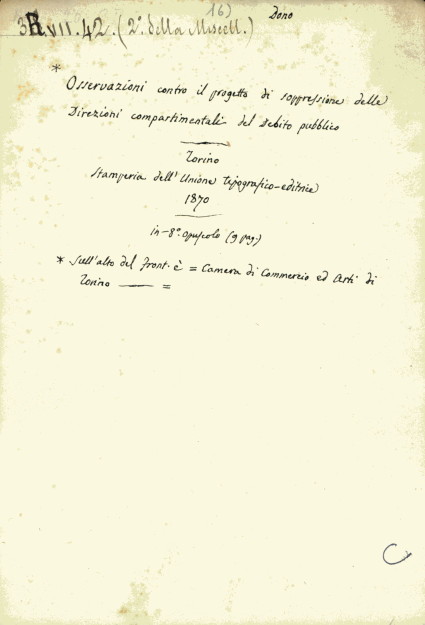 16) Dono
3R.VII.42. (2º. della Miscell.)
* Osservazioni contro il progetto di soppressione delle
Direzioni compartimentali del Debito pubblico
Torino
Stamperia dell'Unione tipografico-editrice
1870
in-8º. opuscolo (9 pag.)
* Sull'alto del front. è = Camera di Commercio ed Arti di
Torino —— =
C